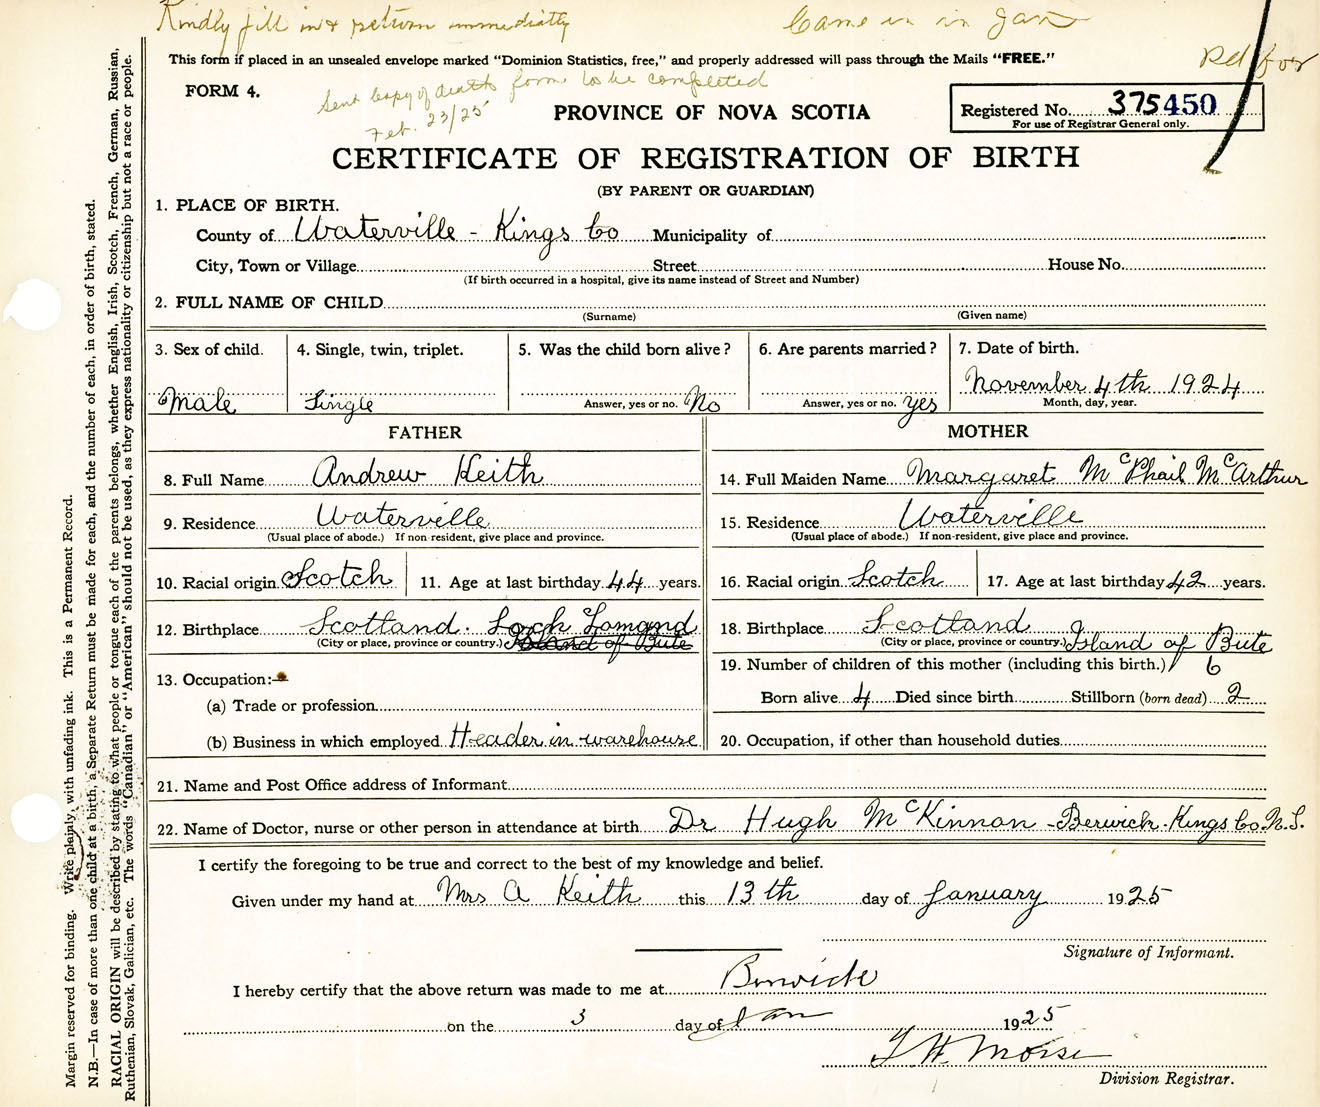 Kindly fill in & return immediatly
Came in in Jan
Pd for
This form if placed in an unsealed envelope marked "Dominion Statistics, free," and properly addressed will pass through the Mails "FREE."
FORM 4.
Sent copy of death form to be completed
Feb. 23/25
PROVINCE OF NOVA SCOTIA
Registered No. 375450
For use of Registrar General only.
CERTIFICATE OF REGISTRATION OF BIRTH
(BY PARENT OR GUARDIAN)
1. PLACE OF BIRTH.
County of Waterville - Kings Co Municipality of
City, Town or Village Street House No.
(If birth occurred in a hospital, give its name instead of Street and Number)
2. FULL NAME OF CHILD
(Surname) (Given name)
3. Sex of child. 4. Single, twin, triplet. 5. Was the child born alive? 6. Are parents married? 7. Date of birth.
Male Single Answer, yes or no. No Answer, yes or no. yes November 4th 1924
Month, day, year.
FATHER MOTHER
8. Full Name Andrew Keith 14. Full Maiden Name Margaret McPhail McArthur
9. Residence Waterville 15. Residence Waterville
(Usual place of abode.) If non-resident, give place and province. (Usual place of abode.) If non-resident, give place and province.
10. Racial origin Scotch 11. Age at last birthday 44 years. 16. Racial origin Scotch 17. Age at last birthday 42 years.
12. Birthplace Scotland. Loch Lomand 18. Birthplace Scotland
(City or place, province or country.) Island of Bute (City or place, province or country.) Island of Bute
13. Occupation:- 19. Number of children of this mother (including this birth.) 6
(a) Trade or profession Born alive 4 Died since birth Stillborn (born dead) 2
(b) Business in which employed Header in warehouse 20. Occupation, if other than household duties
21. Name and Post Office address of Informant
22. Name of Doctor, nurse or other person in attendance at birth Dr Hugh McKinnon - Berwick - Kings Co. N.S.
I certify the foregoing to be true and correct to the best of my knowledge and belief.
Given under my hand at Mrs A Keith this 13th day of January 1925
Signature of Informant.
I hereby certify that the above return was made to me at Berwick
on the 3 day of Jan 1925
Morse
Division Registrar.
Margin reserved for binding. Write plainly, with unfading ink. This is a Permanent Record.
N.B.—In case of more than one child at a birth, a Separate Return must be made for each, and the number of each, in order of birth, stated.
RACIAL ORIGIN will be described by stating to what people or tongue each of the parents belongs, whether English, Irish, Scotch, French, German, Russian,
Ruthenian, Slovak, Galician, etc. The words "Canadian" or "American" should not be used, as they express nationality or citizenship but not a race or people.